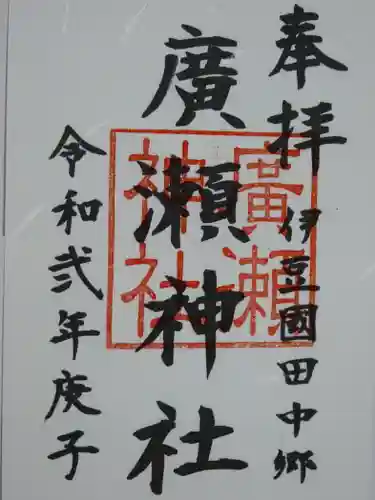 奉拝
伊豆國田中郷
廣瀬神社
廣瀬神社
令和弐年庚子